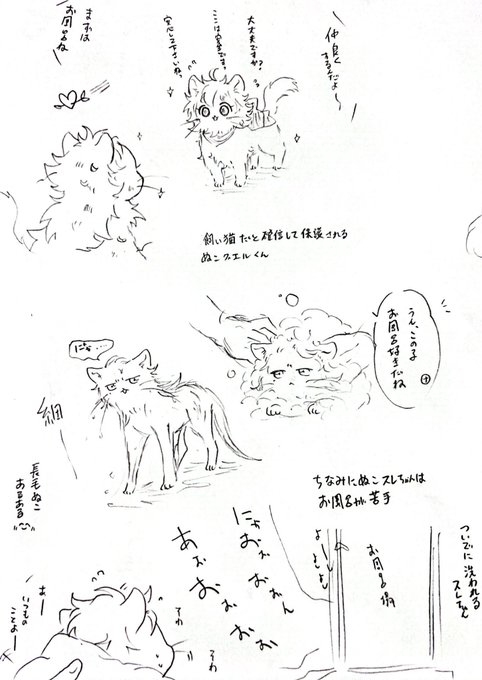 仲良く
するんだよ〜
大丈夫ですか?
ここは安全です。
安心して下さいね。
まずは
お風呂ね
飼い猫だと確信して保護される
ぬこクエルくん
うん、この子
お風呂好きだね
にゃ…
細
長毛ぬこ
あるある
ちなみにぬこスレちゃんは
お風呂が苦手
ついでに洗われる
スレちゃん
お風呂場
よーしよし
にゃおぉぉん
あぉおぉぉぉ
そわ
そわ
あー
いつもの
ことよー